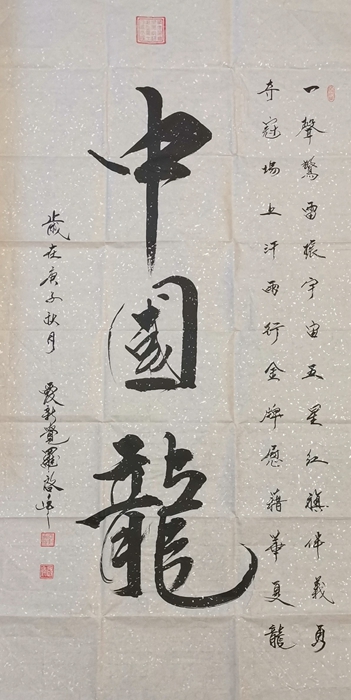 一聲驚雷振宇宙五星红旗伴義勇
夺冠場上汗雨行金牌慰藉華夏龍
中國龍
歲在庚子秋月 愛新覺羅